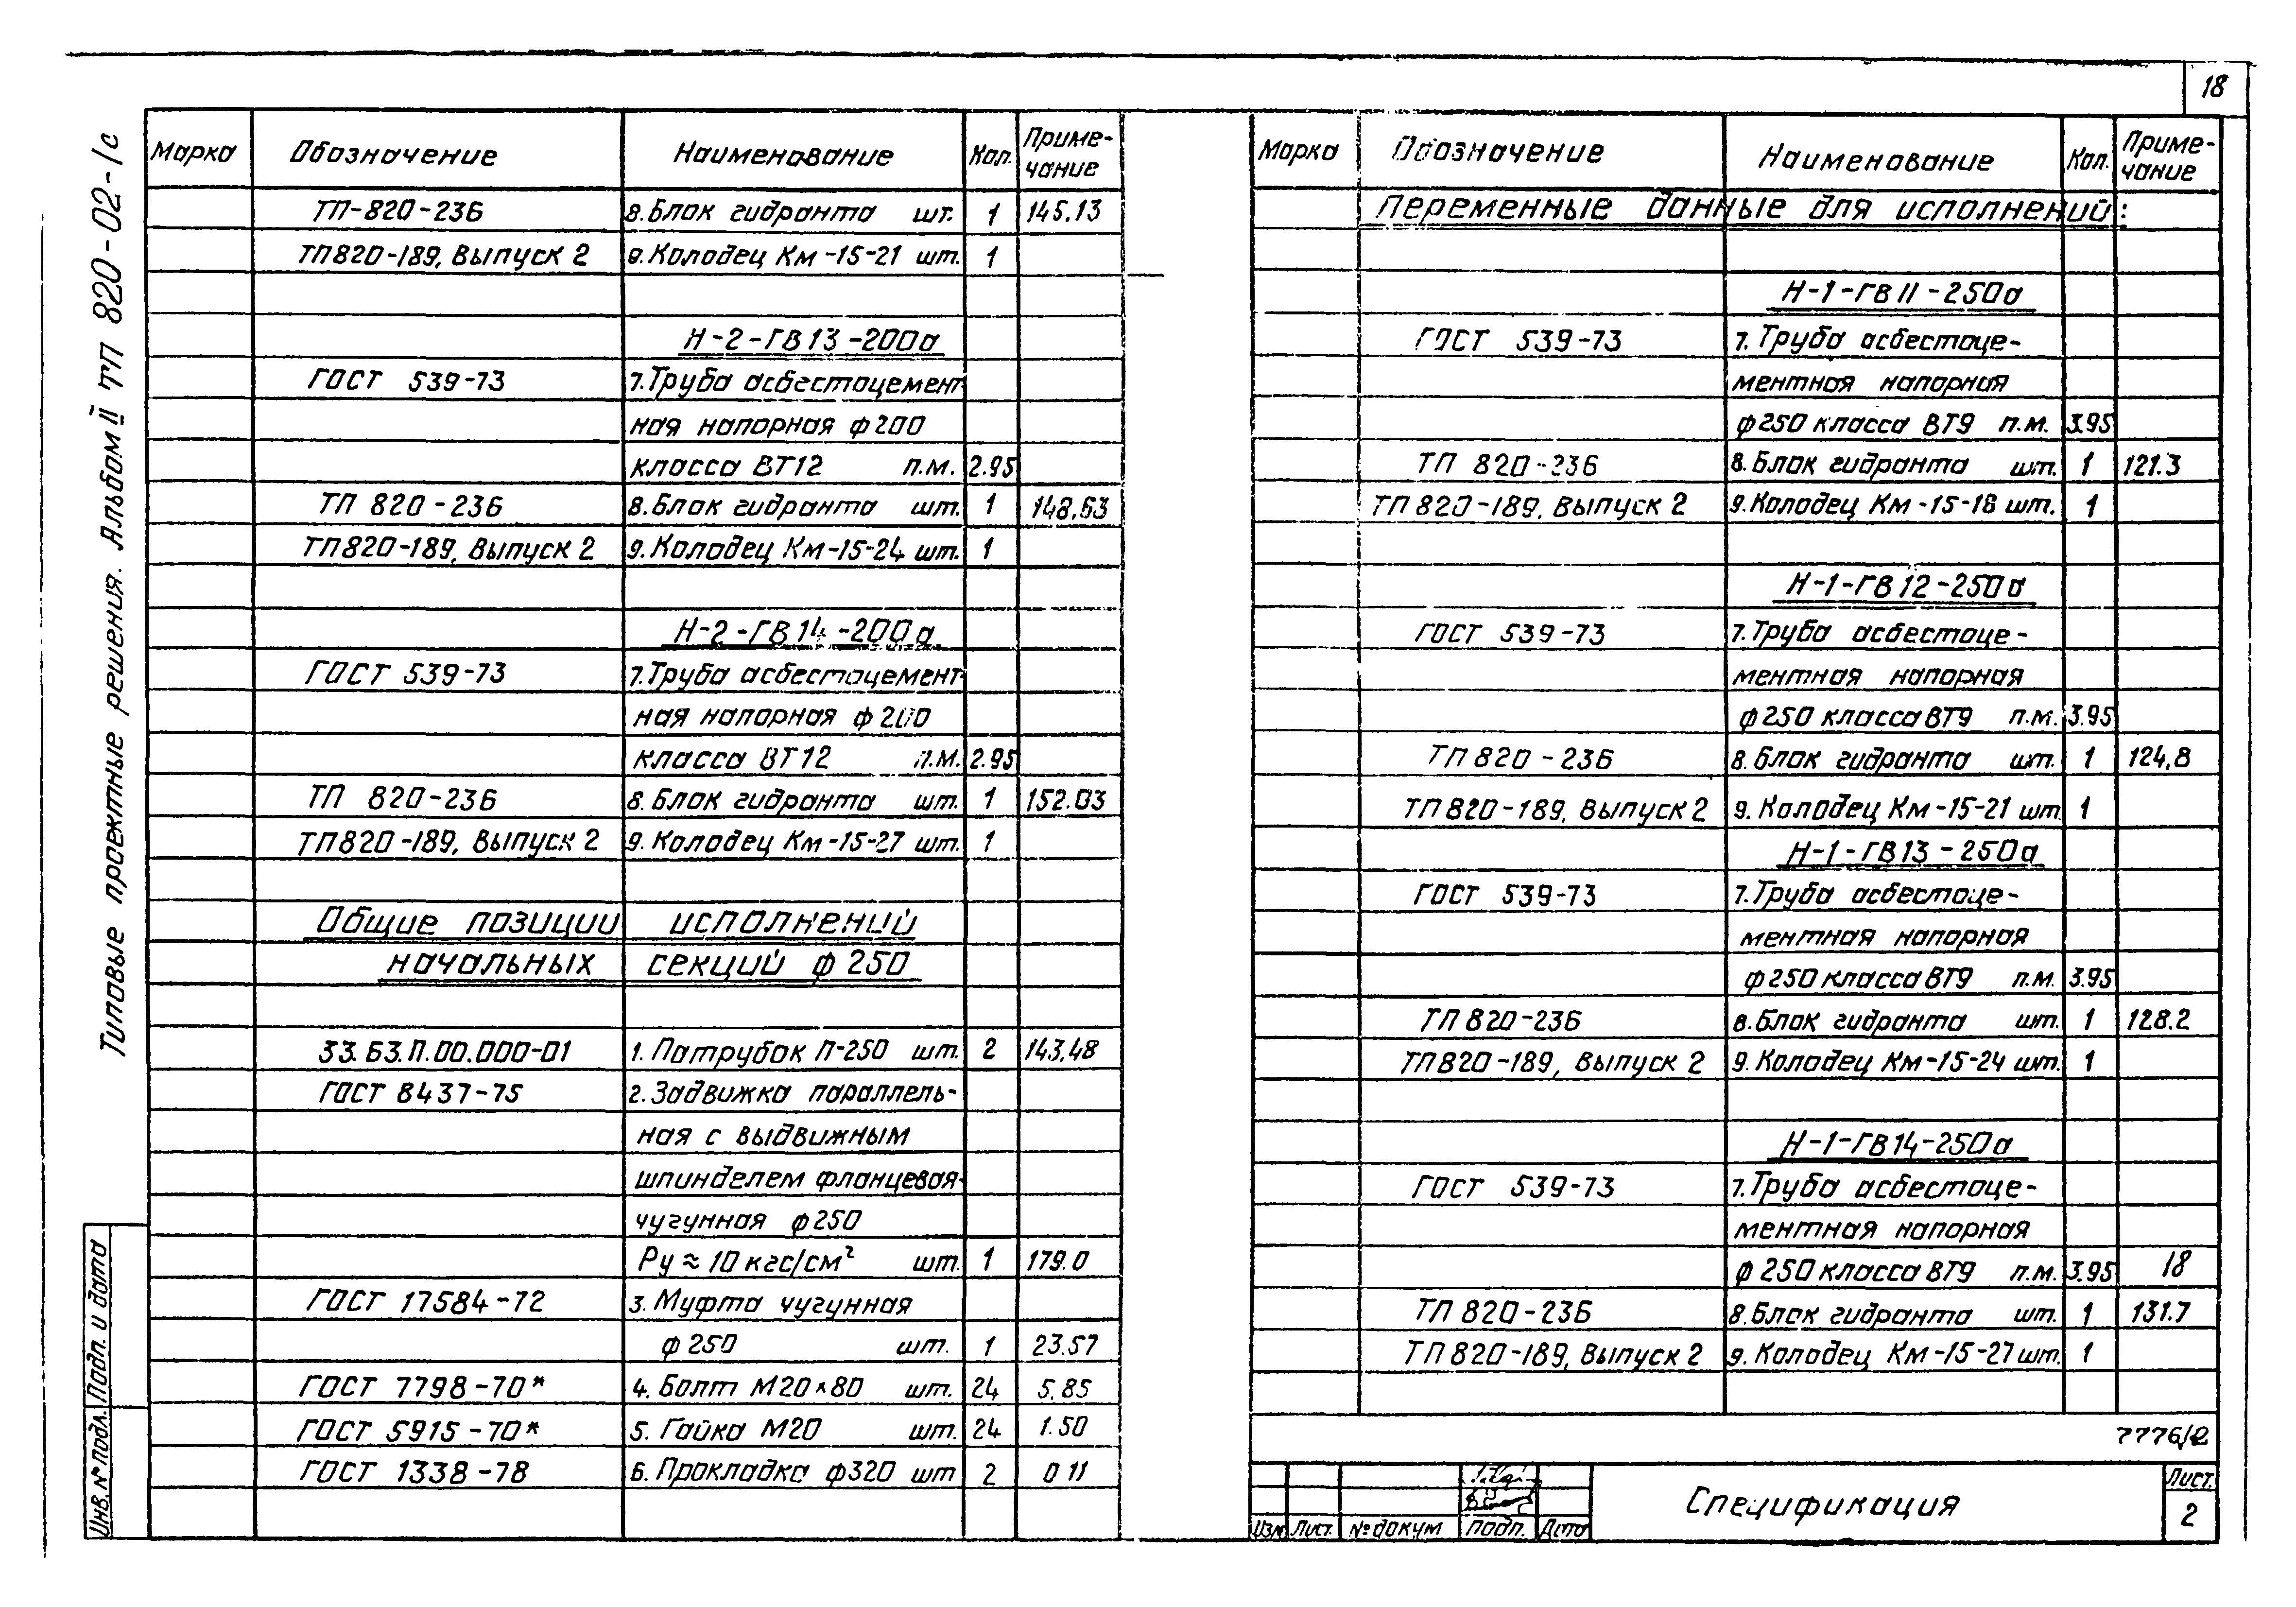 18
Типовые проектные решения. Альбом II ТП 820-02-1с
Марка Обозначение Наименование Кол. Приме-
чание
ТП-820-236 8. Блок гидранта шт. 1 145.13
ТП820-189, Выпуск 2 9. Колодец Км-15-21 шт. 1
Н-2-ГВ13-200а
ГОСТ 539-73 7. Труба асбестоцемент
ная напорная ф200
класса ВТ12 п.м. 2.95
ТП 820-236 8. Блок гидранта шт. 1 148.63
ТП820-189, Выпуск 2 9. Колодец Км-15-24 шт. 1
Н-2-ГВ14-200а
ГОСТ 539-73 7. Труба асбестоцемент
ная напорная ф200
класса ВТ12 п.м. 2.95
ТП 820-236 8. Блок гидранта шт. 1 152.03
ТП820-189, Выпуск 2 9. Колодец Км-15-27 шт. 1
Общие позиции исполнений
начальных секций ф250
33.63.П.00.000-01 1. Патрубок П-250 шт. 2 143,48
ГОСТ 8437-75 2. Задвижка параллель-
ная с выдвижным
шпинделем фланцевая
чугунная ф250
Ру ≈ 10 кгс/см² шт. 1 179.0
ГОСТ 17584-72 3. Муфта чугунная
ф250 шт. 1 23.57
ГОСТ 7798-70* 4. Болт М20×80 шт. 24 5.85
ГОСТ 5915-70* 5. Гайка М20 шт. 24 1.50
ГОСТ 1338-78 6. Прокладка ф320 шт 2 0 11
Инв. № подл. Подп. и дата
Марка Обозначение Наименование Кол. Приме-
чание
Переменные данные для исполнений:
Н-1-ГВ11-250а
ГОСТ 539-73 7. Труба асбестоце-
ментная напорная
ф250 класса ВТ9 п.м. 3.95
ТП 820-236 8. Блок гидранта шт. 1 121.3
ТП820-189, Выпуск 2 9. Колодец Км-15-18 шт. 1
Н-1-ГВ12-250а
ГОСТ 539-73 7. Труба асбестоце-
ментная напорная
ф250 класса ВТ9 п.м. 3.95
ТП 820-236 8. Блок гидранта шт. 1 124,8
ТП820-189, Выпуск 2 9. Колодец Км-15-21 шт 1
Н-1-ГВ13-250а
ГОСТ 539-73 7. Труба асбестоце-
ментная напорная
ф250 класса ВТ9 п.м. 3.95
ТП 820-236 8. Блок гидранта шт. 1 128.2
ТП820-189, Выпуск 2 9. Колодец Км-15-24 шт. 1
Н-1-ГВ14-250а
ГОСТ 539-73 7. Труба асбестоце-
ментная напорная
ф250 класса ВТ9 п.м. 3.95 18
ТП 820-236 8. Блок гидранта шт. 1 131.7
ТП820-189, Выпуск 2 9. Колодец Км-15-27 шт. 1
7776/2
Изм Лист. № докум Подп. Дата
Спецификация
Лист.
2